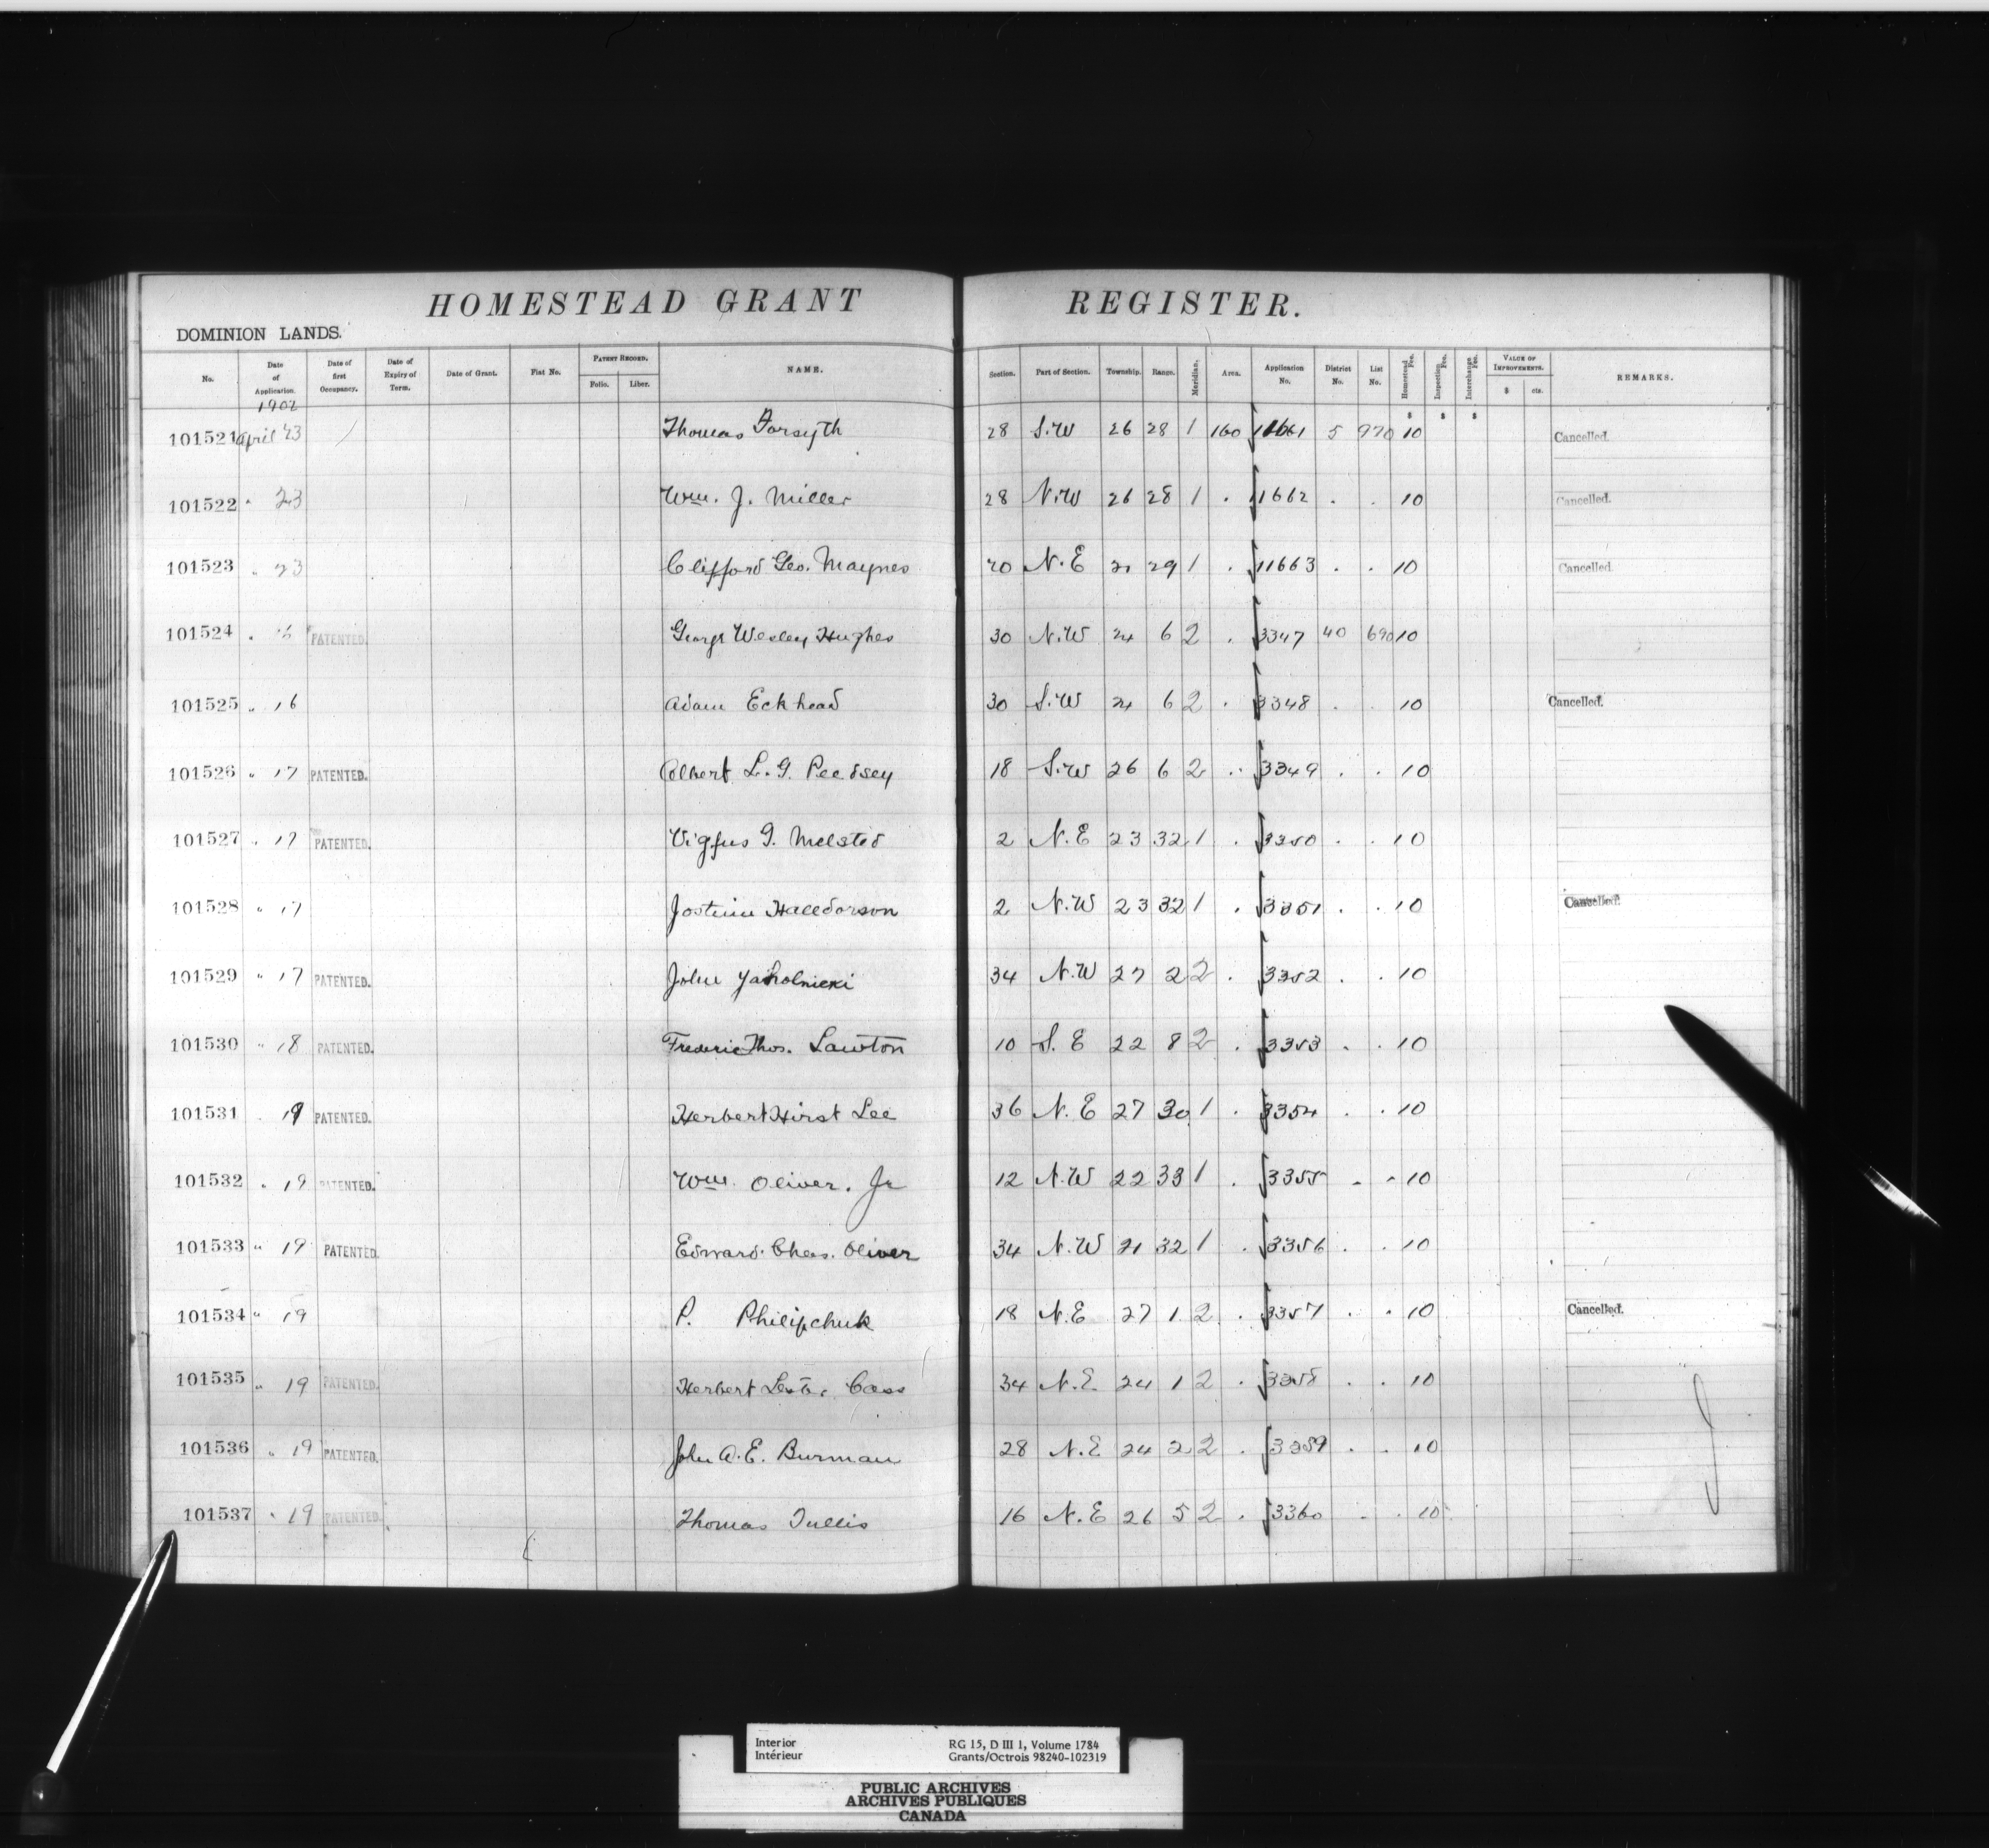 HOMESTEAD GRANT REGISTER.
DOMINION LANDS.
No. Date of Application. Date of first Occupancy. Date of Expiry of Term. Date of Grant. Fiat No. PATENT RECORD. Folio. Liber. NAME. Section. Part of Section. Township. Range. Meridian. Area. Application No. District No. List No. Homestead Fee. Inspection Fee. Interchange Fee. VALUE OF IMPROVEMENTS. $ cts. REMARKS.
1902 $ $ $
101521 April 23 Thomas Forsyth 28 S.W 26 28 1 160 11661 5 970 10 Cancelled.
101522 " 23 Wm. J. Miller 28 N.W 26 28 1 . 11662 . . 10 Cancelled.
101523 " 23 Clifford Geo. Maynes 20 N.E 21 29 1 . 11663 . . 10 Cancelled.
101524 " PATENTED. George Wesley Hughes 30 N.W 24 6 2 . 3347 40 690 10
101525 " 16 Adam Eckhead 30 S.W 24 6 2 . 3348 . . 10 Cancelled.
101526 " 17 PATENTED. Albert L. G. 18 S.W 26 6 2 . 3349 . . 10
101527 " 17 PATENTED. Vigfus G. Melsted 2 N.E 23 32 1 . 3350 . . 10
101528 " 17 Halldorson 2 N.W 23 32 1 . 3351 . . 10 Cancelled.
101529 " 17 PATENTED. John 34 N.W 27 2 2 . 3352 . . 10
101530 " 18 PATENTED. Frederic Thos. Lawton 10 S.E 22 8 2 . 3353 . . 10
101531 " 19 PATENTED. Herbert Hirst Lee 36 N.E 27 30 1 . 3354 . . 10
101532 " 19 PATENTED. Wm. Oliver. Jr 12 N.W 22 33 1 . 3355 . . 10
101533 " 19 PATENTED. Edward. Chas. Oliver 34 N.W 21 32 1 . 3356 . . 10
101534 " 19 P. Philipchuk 18 N.E 27 1 2 . 3357 . . 10 Cancelled.
101535 " 19 PATENTED. Herbert Lester Cass 34 N.E 24 1 2 . 3358 . . 10
101536 " 19 PATENTED. John A. E. Burman 28 N.E 24 2 2 . 3359 . . 10
101537 " 19 PATENTED. Thomas Tullis 16 N.E 26 5 2 . 3360 . . 10
Interior RG 15, D III 1, Volume 1784
Intérieur Grants/Octrois 98240-102319
PUBLIC ARCHIVES
ARCHIVES PUBLIQUES
CANADA